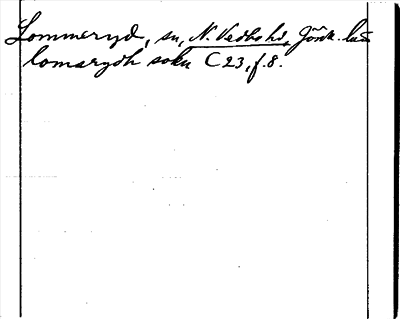 Lommeryd, sn, N. Vedbo hd, Jönk. län
lomarydh sokn C 23, f. 8.